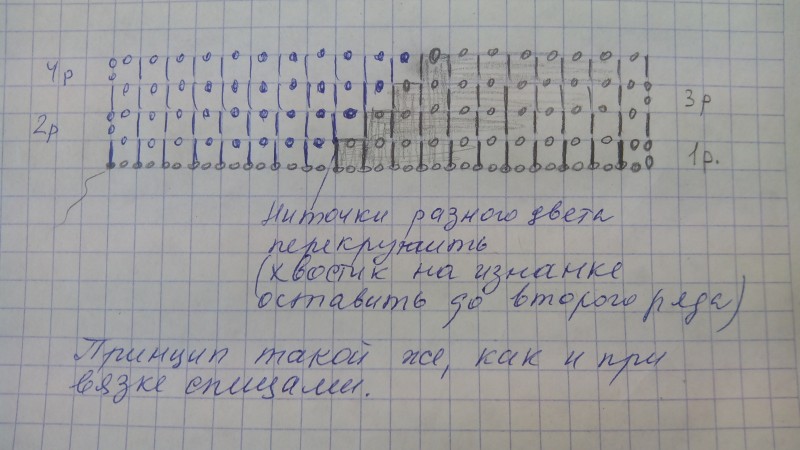 4р
3р
2р
1р.
Ниточки разного цвета
перекружить
(хвостик на изнанке
оставить до второго ряда)
Принцип такой же, как и при
вязке спицами.